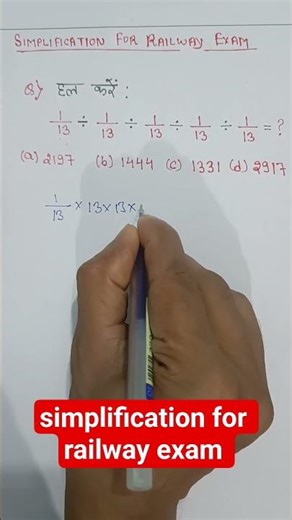 SIMPLIFICATION FOR RAILWAY EXAM
Q) हल करें :
1/13 ÷ 1/13 ÷ 1/13 ÷ 1/13 ÷ 1/13 = ?
(a) 2197 (b) 1444 (c) 1331 (d) 2917
1/13 × 13 × 13 ×
simplification for
railway exam